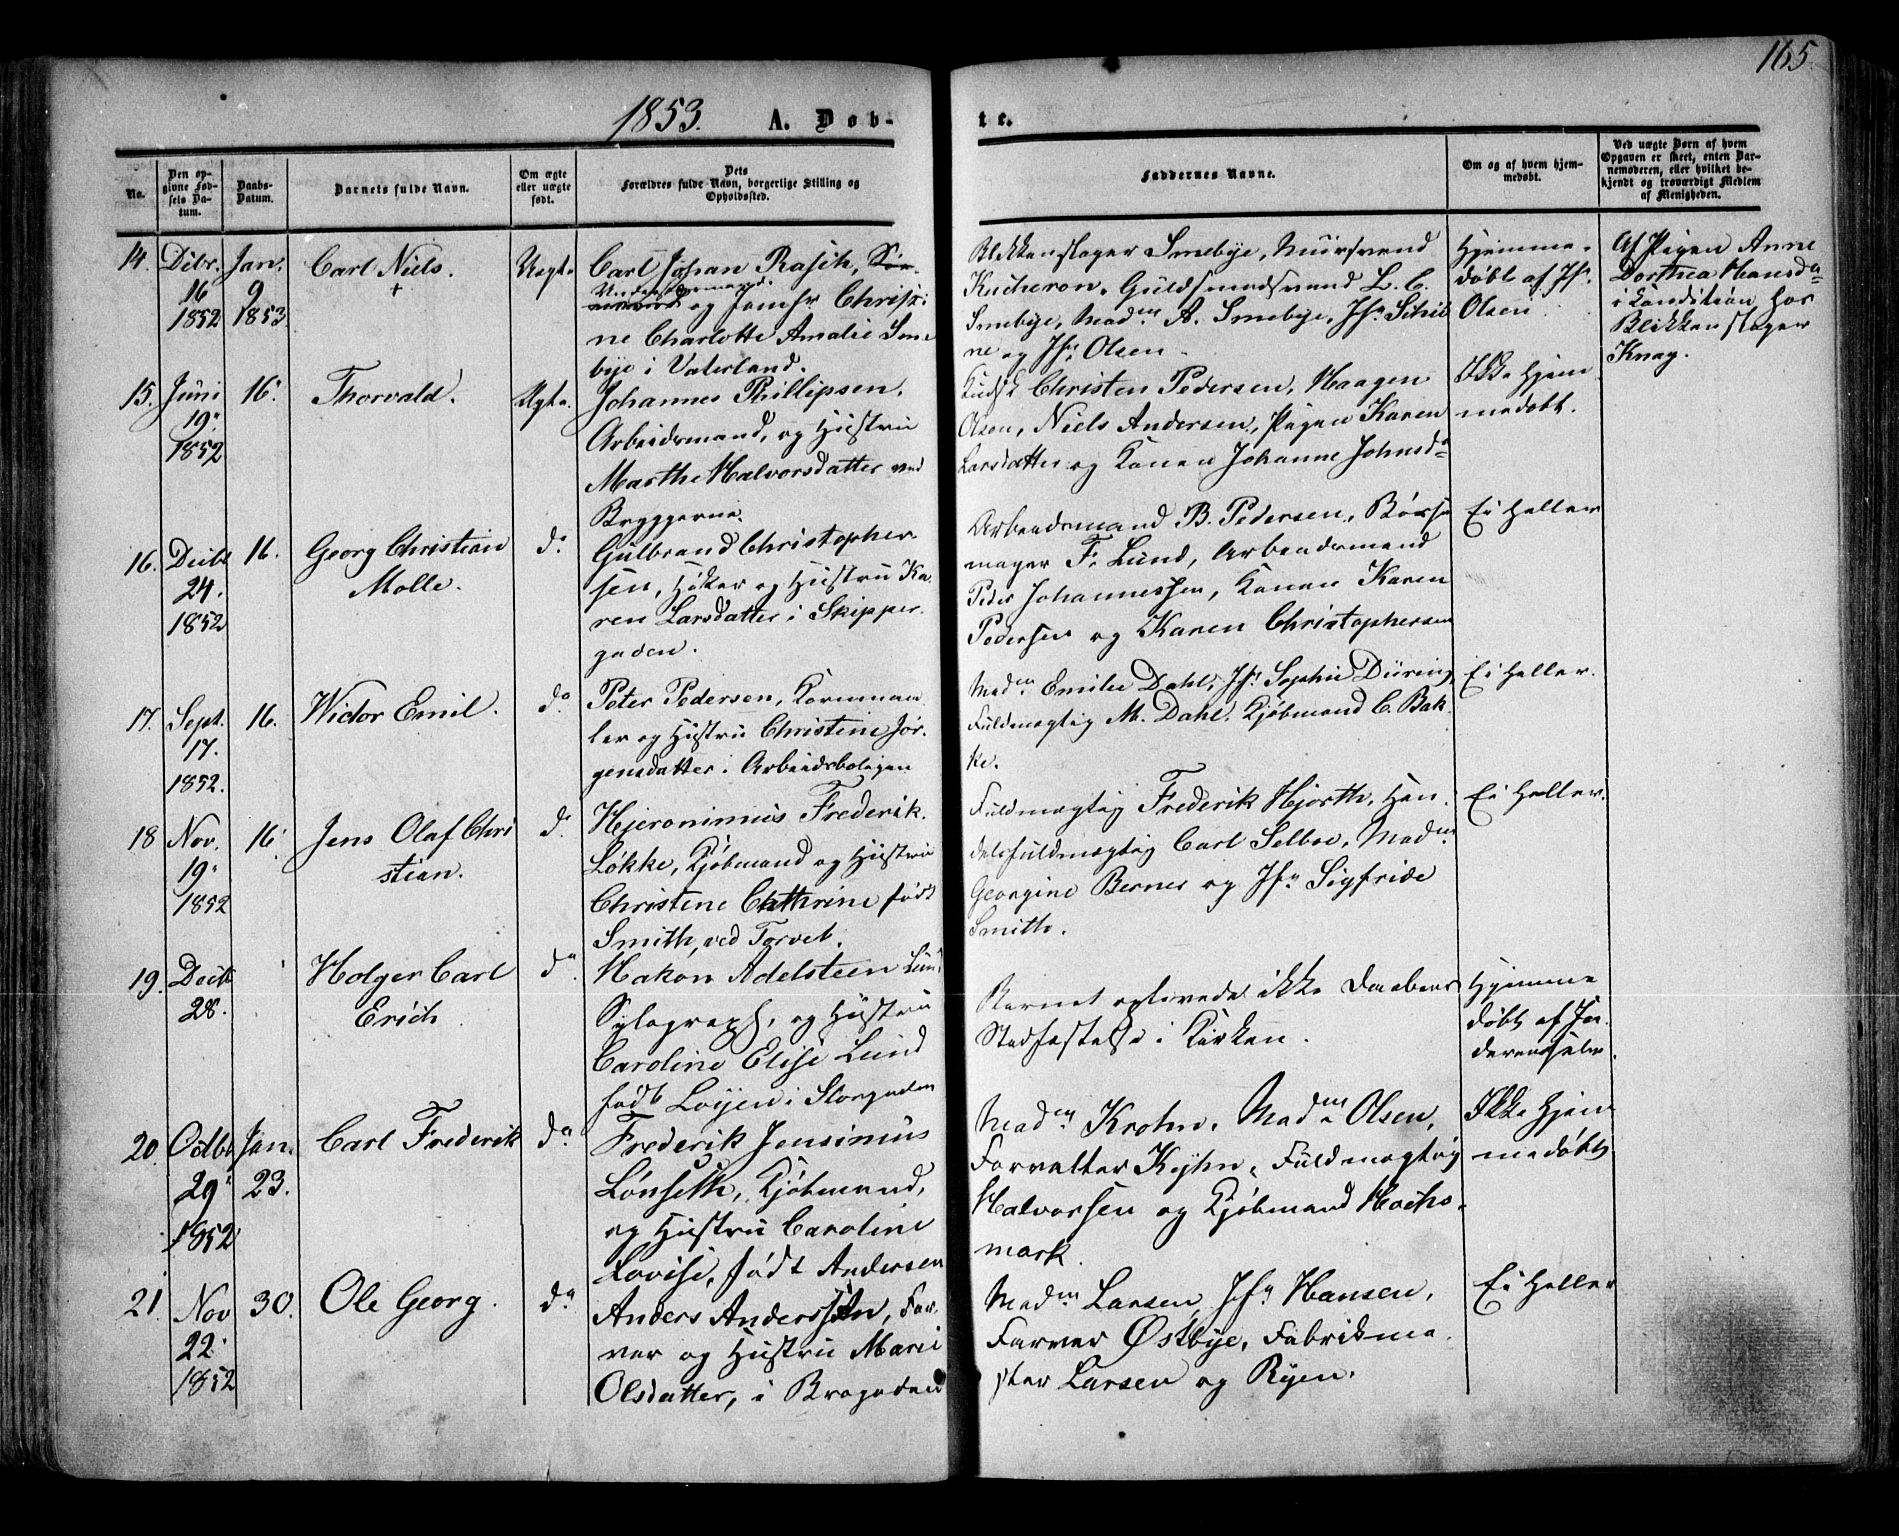 165.
1853. A. Døb-
te.
No.
Den op-
givne Fød-
sels Da-
tum.
Daabs-
Datum.
Barnets fulde Navn.
Om ægte
eller uægte
født.
Dets
Forældres fulde Navn, borgerlige Stilling og
Opholdssted.
Faddernes Navne.
Om og af hvem hjem-
medøbt.
Ved uægte Børn af hvem
Opgaven er skeet, enten Bar-
nemoderen, eller hvilket be-
kjendt og troværdigt Medlem
af Menigheden.
14.
Debr.
16
1852
Jan.
9
1853
Carl Niels.
+
Uægte
Carl Johan Rasch,
og Jomfr Christi
ne Charlotte Amalie Sme
bye i Vaterland.
Blikkenslager Smebye, Muursvend
Kucheron, Guldsmedsvend L. C.
Smebye, Madm. A. Smebye, Jfr
ne og Jfr Olsen.
Hjemme-
døbt af Jfr
Olsen.
Af Pigen Anne
Dorthea Hansda
i Condition hos
Blikkenslager
Knag.
15.
Juni
19
1852
16.
Thorvald.
Ægte.
Johannes Phillipsen,
Arbeidsmand, og Hustru
Marthe Halvorsdatter ved
Bryggerne.
Kudsk Christen Pedersen, Haagen
Olsen, Niels Andersen, Pigen Karen
Larsdatter og Konen Johanne Johnsda
Ikke hjem
medøbt.
16.
Decbr
24.
1852
16.
Georg Christian
Molle.
do
Gulbrand Christopher-
sen, Høker og Hustru Ka-
ren Larsdatter i Skipper-
gaden.
Arbeidsmand B. Pedersen, Børse
mager F. Lund, Arbeidsmand
Peder Johannessen, Konen Karen
Pedersen og Karen Christophersen
Ei heller
17.
Sept.
17.
1852.
16.
Victor Emil.
do
Peter Pedersen, Kornmaa
ler og Hustru Christine Jør-
gensdatter i Arbeidsboligen
Madm Emilie Dahl, Jfr Sophie Düring
Fuldmægtig M. Dahl, Kjøbmand C. Bak
ke.
Ei heller.
18
Nov.
19
1852
16.
Jens Olaf Chri
stian.
do
Hjeronimus Frederik
Løkke, Kjøbmand og Hustru
Christine Cathrine født
Smith, ved Torvet.
Fuldmægtig Frederik Hjorth, Han
delsfuldmægtig Carl Selboe, Madm
Georgine Berner og Jfr Sigfride
Smith.
Ei heller.
19.
Decbr
28.
Holger Carl
Erich
do
Hakon Adelsteen Lund
Xylograph, og Hustru
Caroline Elise Lund
født Loÿen i Storgaden
Barnet oplevede ikke Daabens
Stadfæstelse i Kirken.
Hjemme
døbt af Fa
deren selv.
20.
Octbr
29
1852
Jan.
23.
Carl Frederik
do
Frederik Jensinius
Lønseth, Kjøbmand,
og Hustru Caroline
Lovise, født Andersen
Madm Krohn, Madm Olsen,
Forvalter Keyhn, Fuldmægtig
Halvorsen og Kjøbmand Hochs-
mark.
Ikke hjem
medøbt
21
Nov
22.
1852
30.
Ole Georg.
do
Anders Anderssen, Far-
ver og Hustru Marie
Olsdatter, i Brogaden
Madm Larsen, Jfr Hansen,
Farver Østbye, Fabrikme
ster Larsen og Ryen.
Ei heller